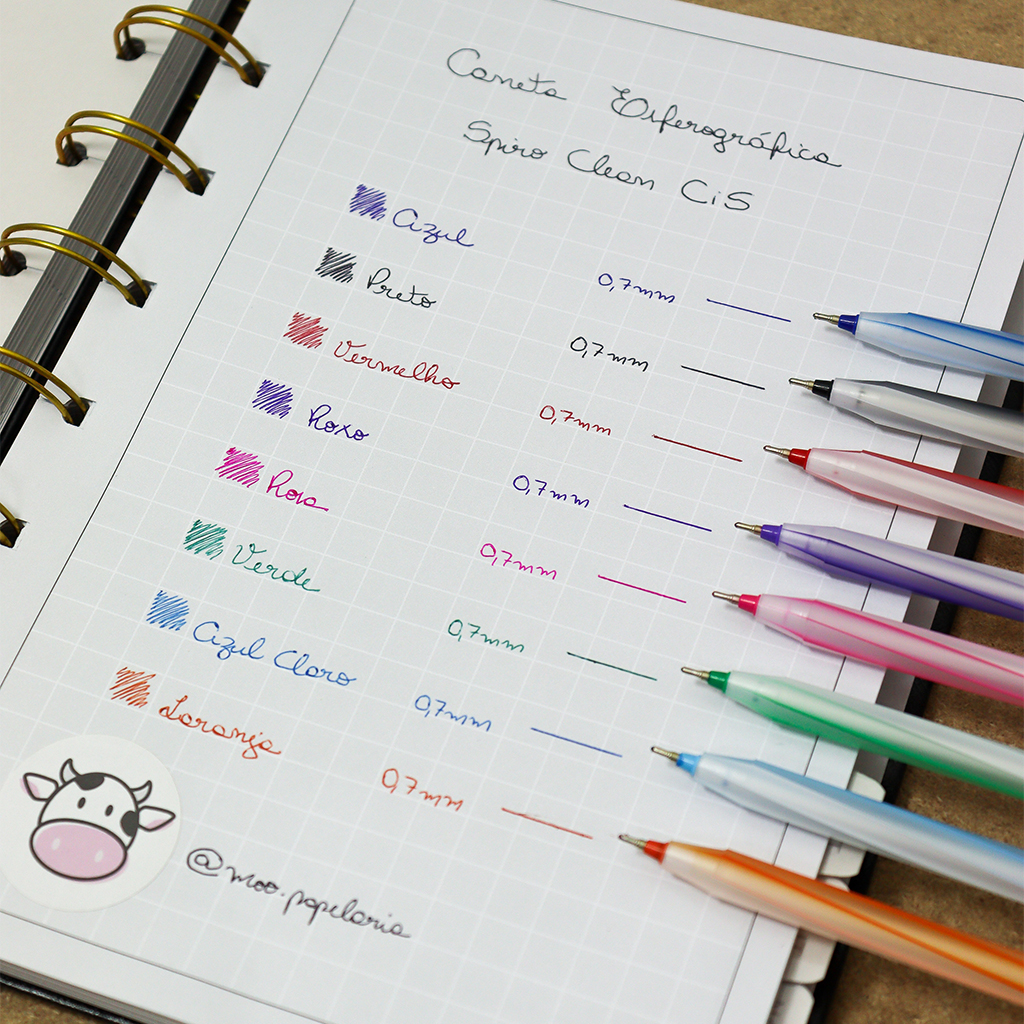 Caneta Esferográfica
Spiro Clean CiS
Azul 0,7mm
Preto 0,7mm
Vermelho 0,7mm
Roxo 0,7mm
Rosa 0,7mm
Verde 0,7mm
Azul Claro 0,7mm
Laranja 0,7mm
@moo.papelaria